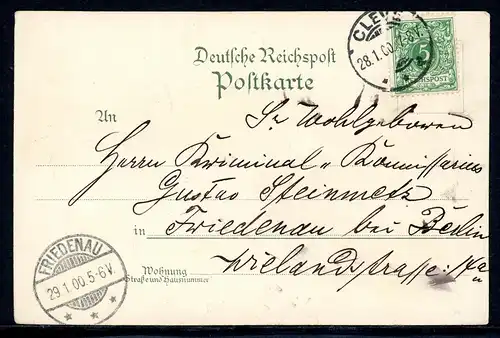 CLEVE
28.1.00.7-8V.
5
REICHSPOST
Deutsche Reichspost
Postkarte
An
Sr Wohlgeboren
Herrn Kriminal-Kommissarius
Gustav Steinmetz
in Friedenau bei Berlin
Wielandstrasse:
Wohnung
Straße und Hausnummer
FRIEDENAU
29.1.00.5-6V.